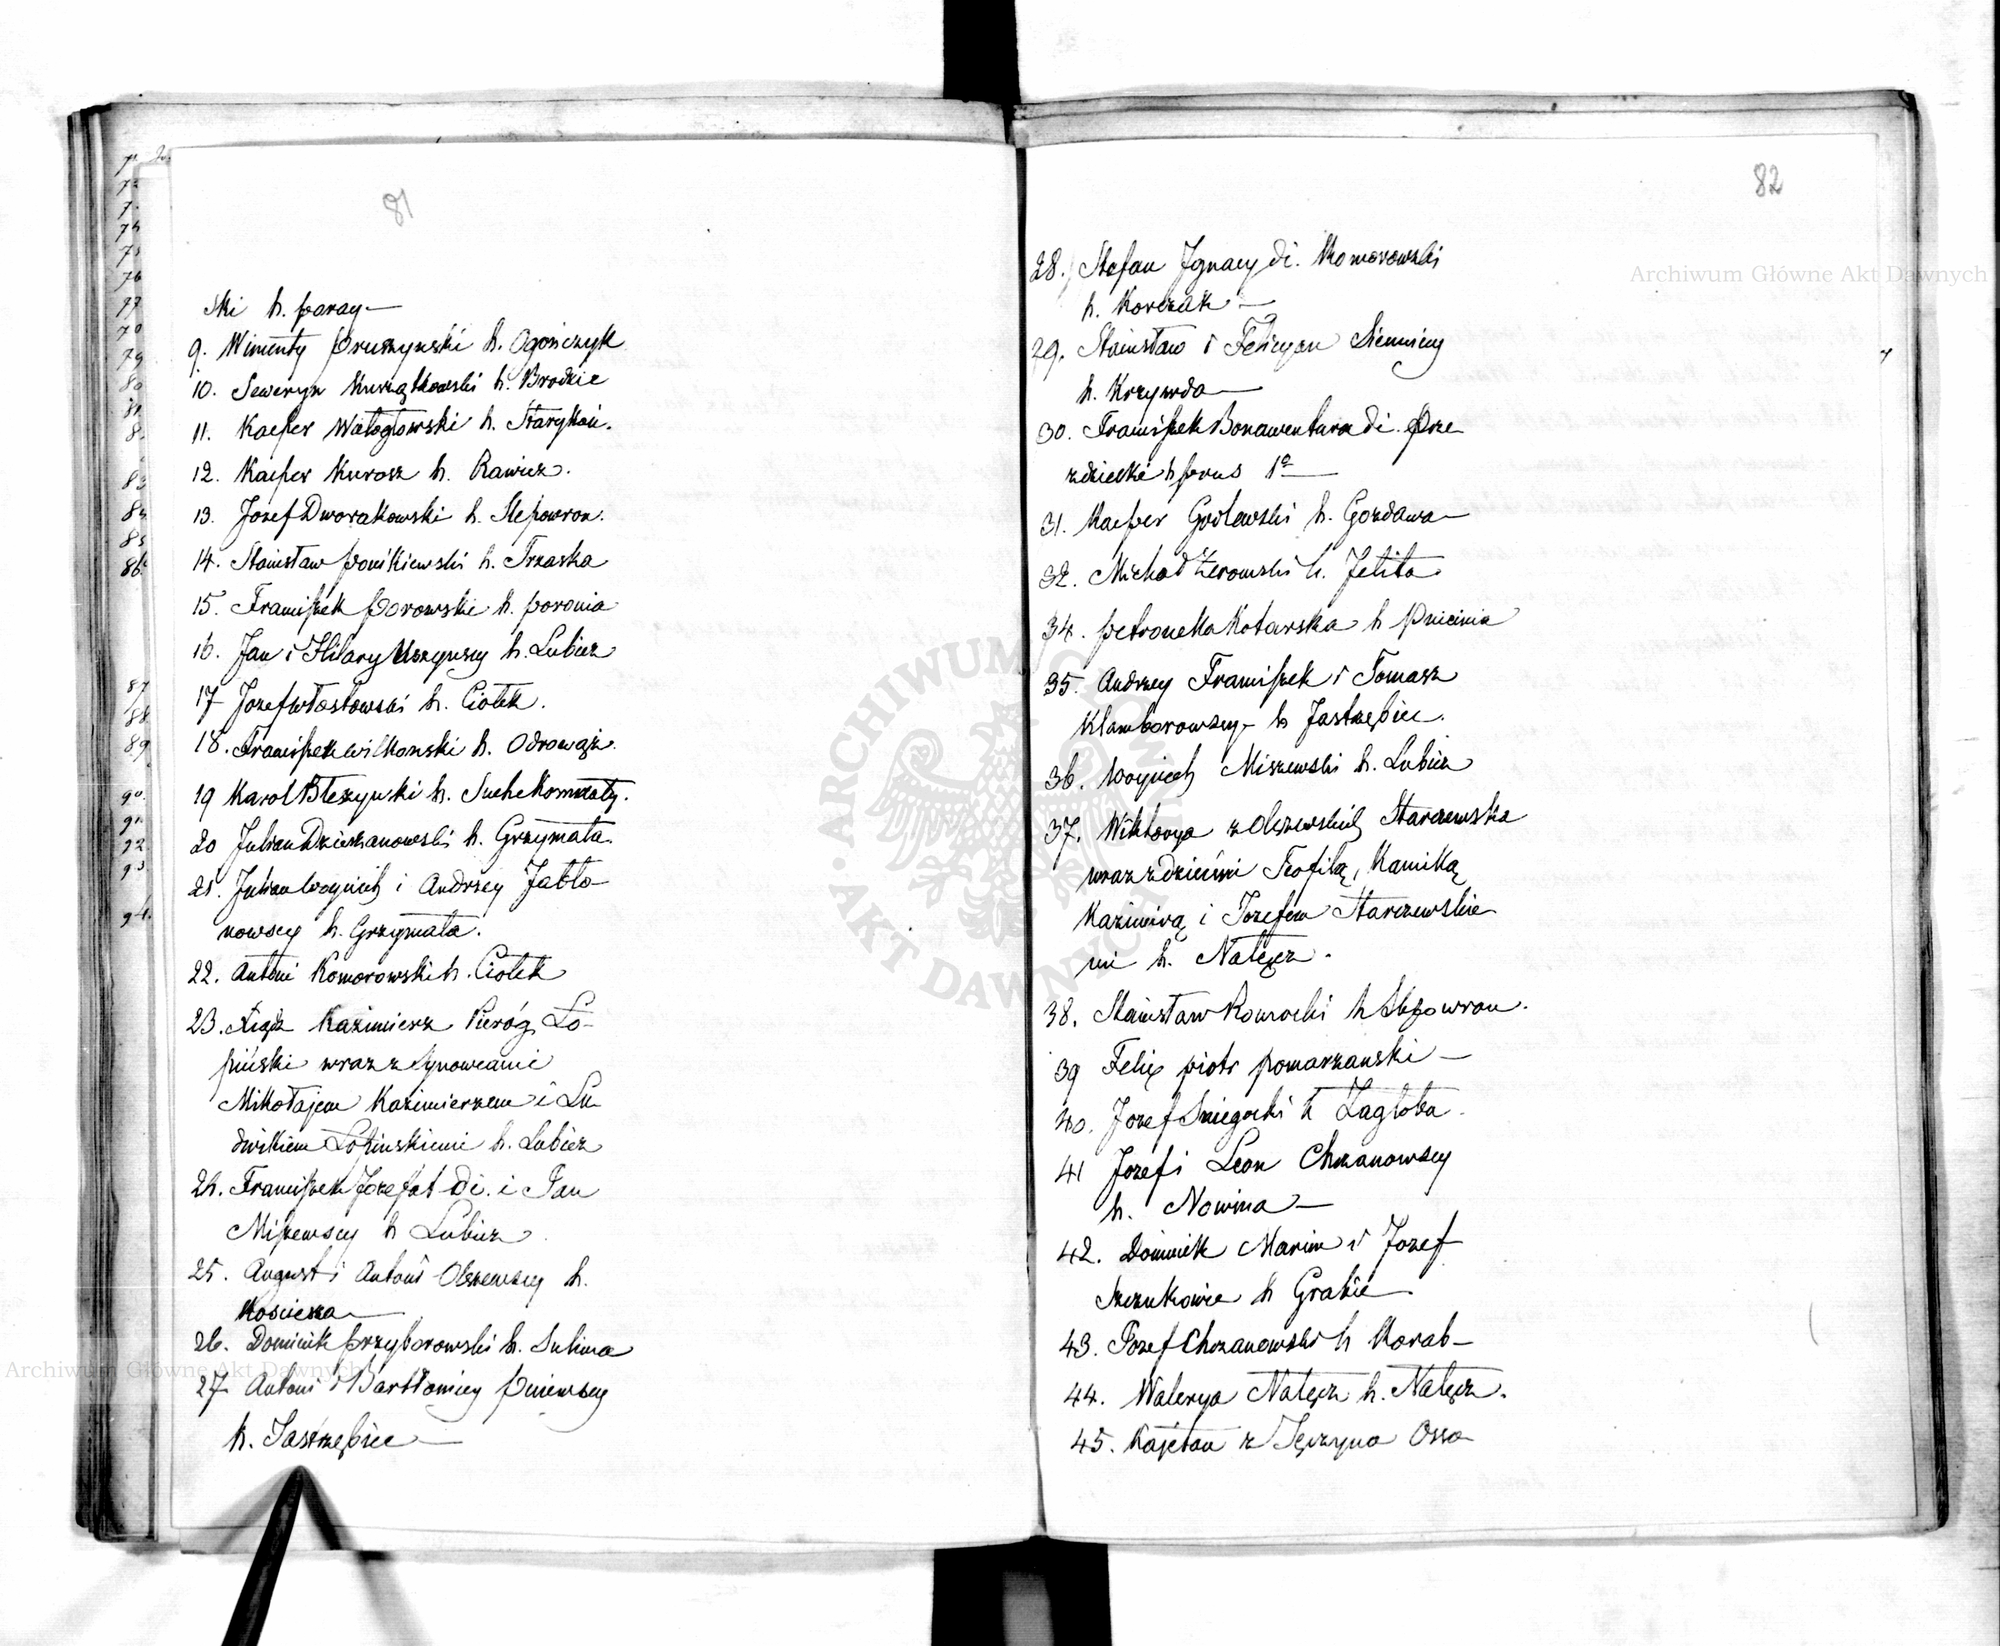 71 2
72
7
74
75
76
77
78
79
80
81
8
83
84
85
86
87
88
89
90
91
92
93
94
81
ski h. poray
9. Wincenty Pruszynski h. Ogończyk
10. Seweryn Kurzątkowski h. Brodzic
11. Kacper Watogłowski h. Starykoń.
12. Kacper Kurosz h. Rawicz.
13. Jozef Dworakowski h. Slepowron.
14. Stanisław Ponikiewski h. Trzaska
15. Franciszek Porowski h. poronia
16. Jan i Hilary Uszynscy h. Lubicz
17 Jozef Włostowski h. Ciołek.
18. Franciszek Wilkonski h. Odrowąż.
19 Karol Błeszynski h. Suche Komnaty.
20 Julian Dzierzanowski h. Grzymała.
21. Julian Woyciech i Andrzey Jabło-
nowscy h. Grzymała.
22. Antoni Komorowski h. Ciołek
23. Xiądz Kazimierz Pieróg Ło-
piński wraz z synowcami
Mikołajem Kazimierzem i Lu
dwikiem Łopinskiemi h. Lubicz
24. Franciszek Jozefat di. i Jan
Miszewscy h Lubicz
25. August i Antoni Olszewscy h.
Kosciesza
26. Dominik Przyborowski h. Sulima
27 Antoni i Bartłomiey Pniewscy
h. Jastrzębiec
82
28. Stefan Ignacy di. Komorowski
h. Korczak
29. Stanisław i Felicyan Siemiccy
h. Krzywda
30. Franciszek Bonawentura di. Prze
zdziecki h prus 1º
31. Kacper Godlewski h. Gozdawa
32. Michał Żerowski h. Jelita
34. Petronella Kotarska h Pniejnia
35. Andrzey Franciszek i Tomasz
Klamborowscy h Jastrzębiec.
36. Woyciech Miszewski h. Lubicz
37. Wiktorya z Olszewskich Starzewska
wraz z dziećmi Teofilą, Kamilą
Kazimirą i Jozefem Starczewskie
mi h. Nałęcz.
38. Stanisław Komocki h Slepowron.
39 Felix piotr pomarzanski
40. Jozef Sniegocki h Zagłoba.
41 Jozef i Leon Chrzanowscy
h. Nowina
42. Dominik Marcin i Jozef
Szczukowie h Grabie
43. Jozef Chrzanowski h Korab
44. Walerya Nałęcz h. Nałęcz.
45. Kajetan z Tęczyna Osso
Archiwum Główne Akt Dawnych
Archiwum Główne Akt Dawnych
ARCHIWUM GŁÓWNE AKT DAWNYCH